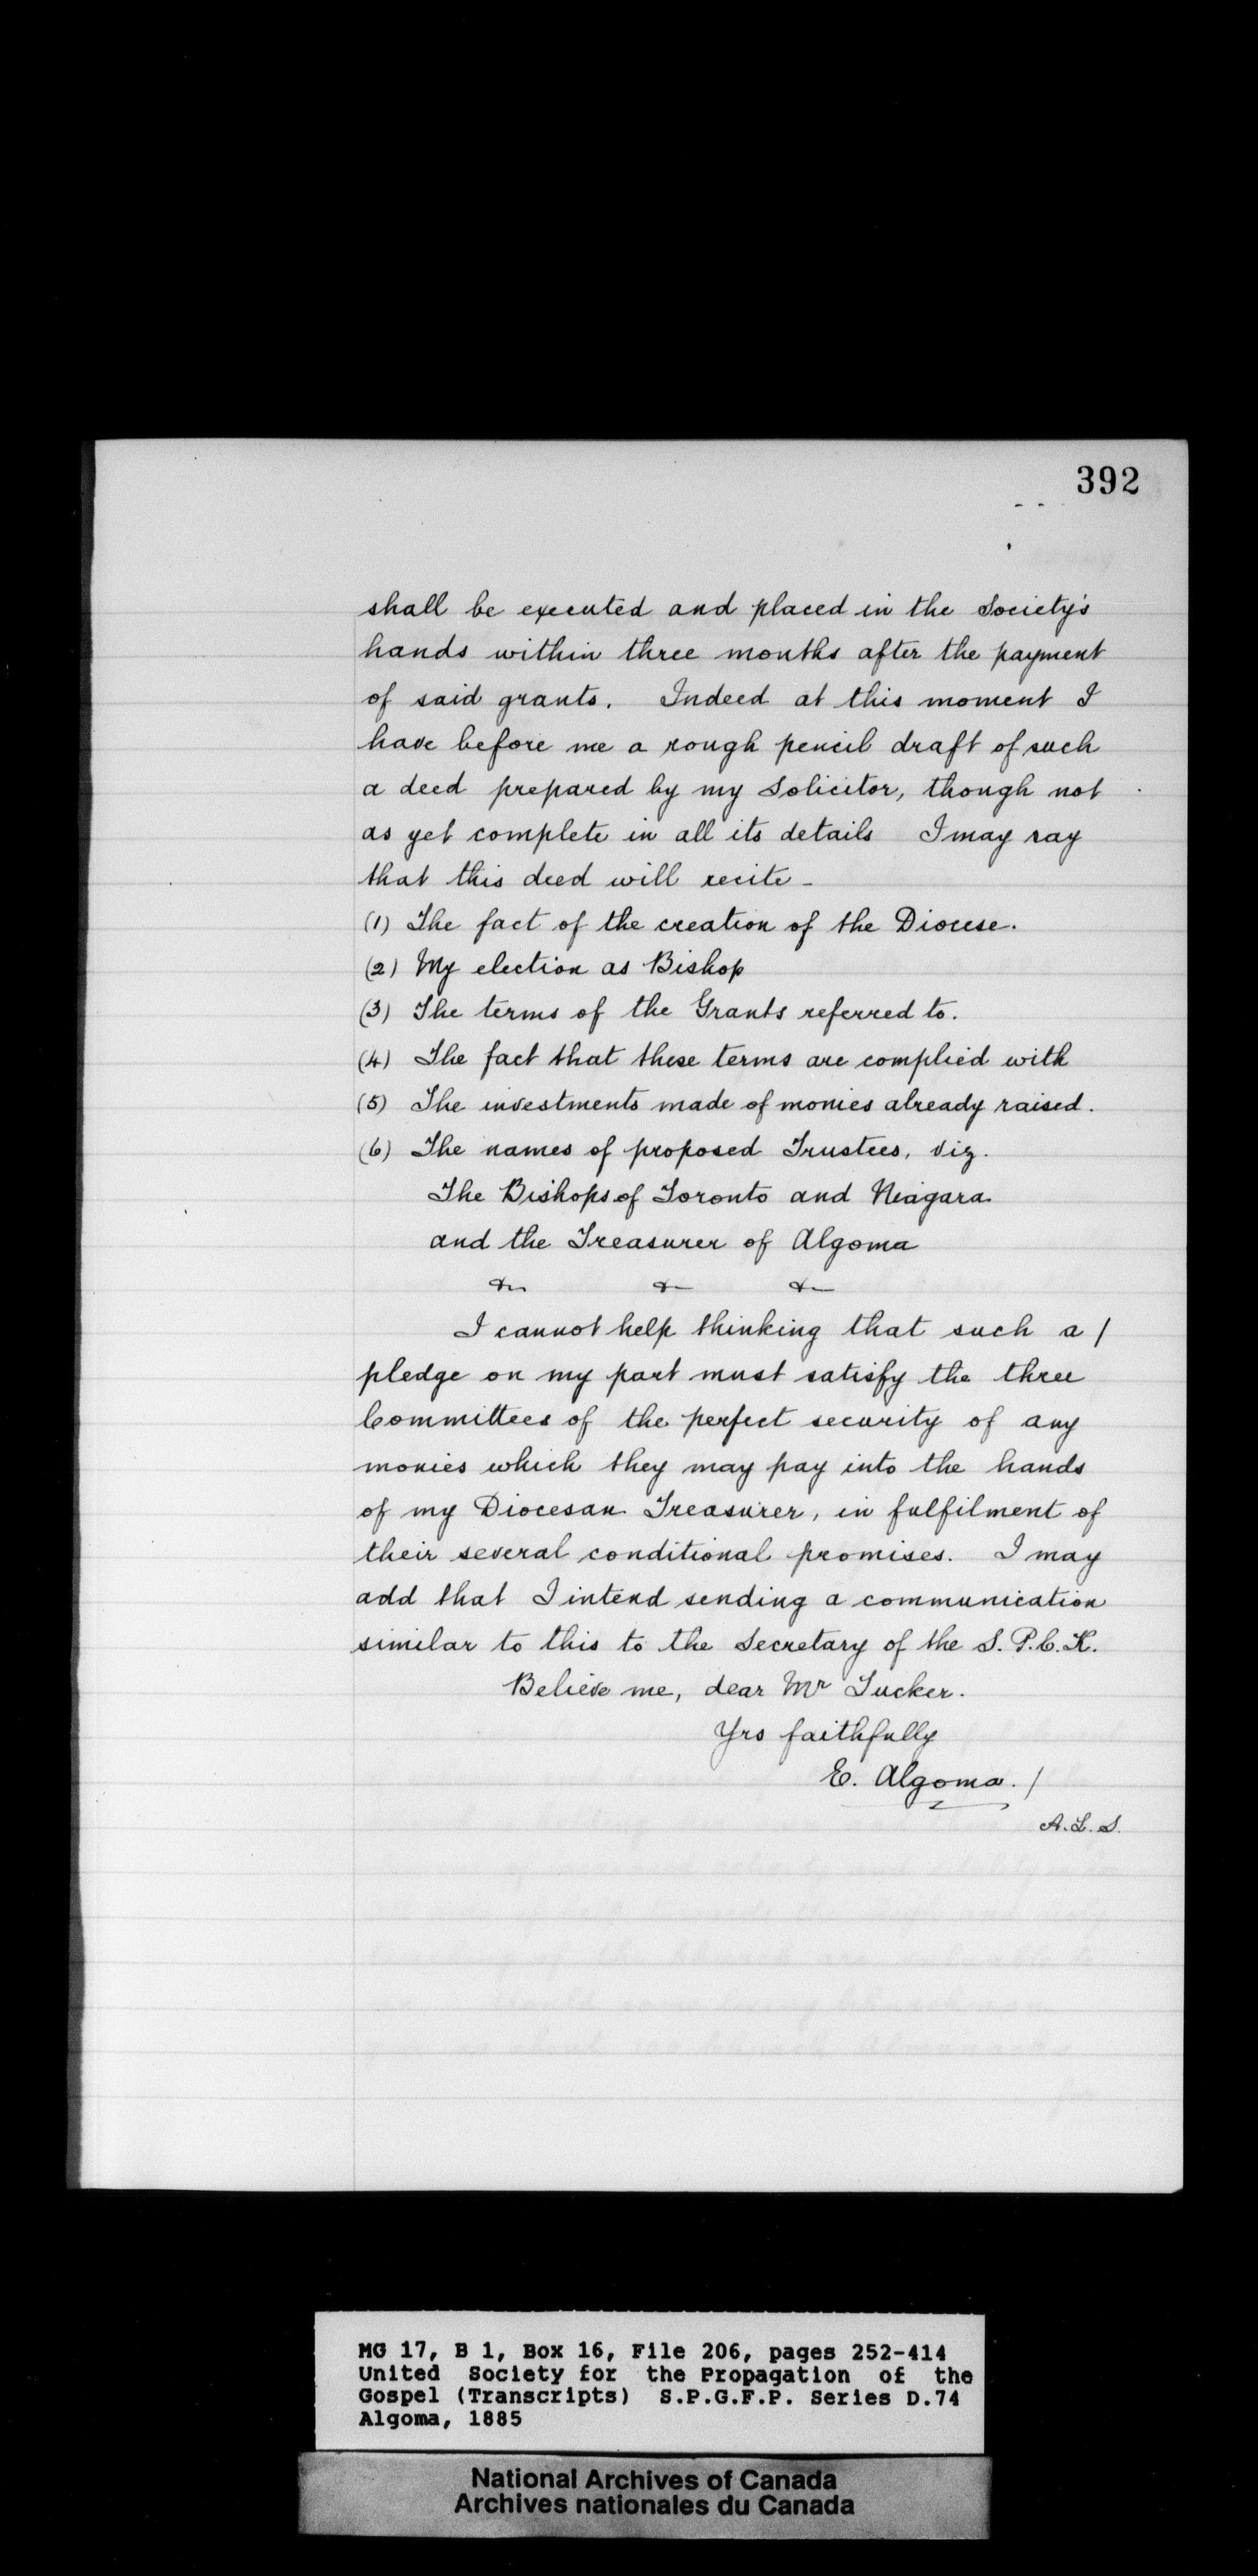 392
shall be executed and placed in the Society's
hands within three months after the payment
of said grants. Indeed at this moment I
have before me a rough pencil draft of such
a deed prepared by my Solicitor, though not
as yet complete in all its details I may say
that this deed will recite -
(1) The fact of the creation of the Diocese.
(2) My election as Bishop
(3) The terms of the Grants referred to.
(4) The fact that these terms are complied with
(5) The investments made of monies already raised.
(6) The names of proposed Trustees, viz.
The Bishops of Toronto and Niagara
and the Treasurer of Algoma
& & &
I cannot help thinking that such a /
pledge on my part must satisfy the three
Committees of the perfect security of any
monies which they may pay into the hands
of my Diocesan Treasurer, in fulfilment of
their several conditional promises. I may
add that I intend sending a communication
similar to this to the Secretary of the S.P.C.K.
Believe me, dear Mr Tucker.
Yrs faithfully
E. Algoma. /
A.L.S.
MG 17, B 1, Box 16, File 206, pages 252-414
United Society for the Propagation of the
Gospel (Transcripts) S.P.G.F.P. Series D.74
Algoma, 1885
National Archives of Canada
Archives nationales du Canada